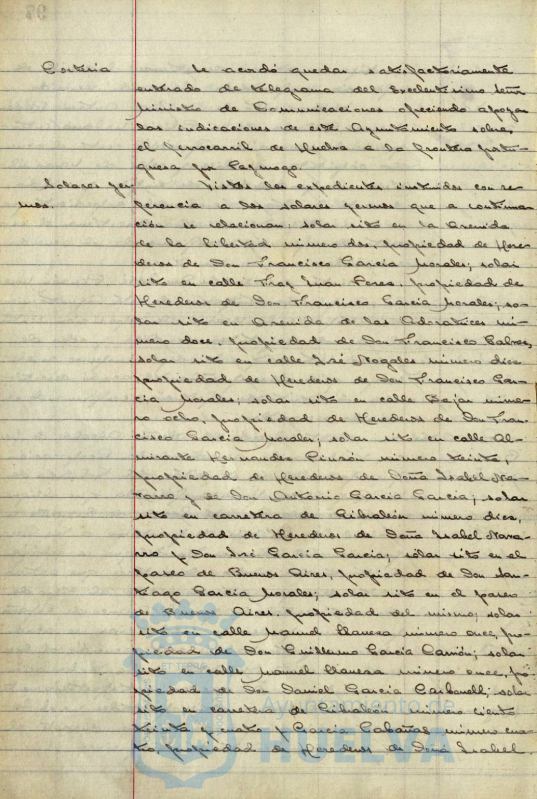 Se acordó quedar satisfactoriamente
enterado de telegrama del Excelentísimo Señor
Ministro de Comunicaciones ofreciendo apoyar
las indicaciones de este Ayuntamiento sobre
el ferrocarril de Huelva a la frontera portu-
guesa por Paymogo.
Solares yer-
mos.
Vistos los expedientes instruidos con re-
ferencia a los solares yermos que a continua-
ción se relacionan: solar sito en la Avenida
de la Libertad número dos, propiedad de Here-
deros de Don Francisco García Morales; solar
sito en calle Fray Juan Perez, propiedad de
Herederos de Don Francisco García Morales; so-
lar sito en Avenida de las Adoratrices nú-
mero doce, propiedad de Don Francisco
solar sito en calle José Nogales número diez
propiedad de Herederos de Don Francisco Gar-
cía Morales; solar sito en calle Bejar núme-
ro ocho, propiedad de Herederos de Don Fran-
cisco García Morales; solar sito en calle Al-
mirante Hernandez Pinzón número treinta,
propiedad de Herederos de Doña Isabel Na-
varro y de Don Antonio García García; solar
sito en carretera de Gibraleón número diez,
propiedad de Herederos de Doña Isabel Nava-
rro y Don José García García; solar sito en el
paseo de Buenos Aires, propiedad de Don San-
tiago García Morales; solar sito en el paseo
de Buenos Aires, propiedad del mismo; solar
sito en calle Manuel número once, pro-
piedad de Don Guillermo García Carrión; solar
sito en calle Manuel número once, pro-
piedad de Don Daniel García Carbonell; solar
sito en carretera de Gibraleón número ciento
treinta y cuatro y García Cabañas número cua-
tro, propiedad de Herederos de Doña Isabel
Ayuntamiento de
HUELVA